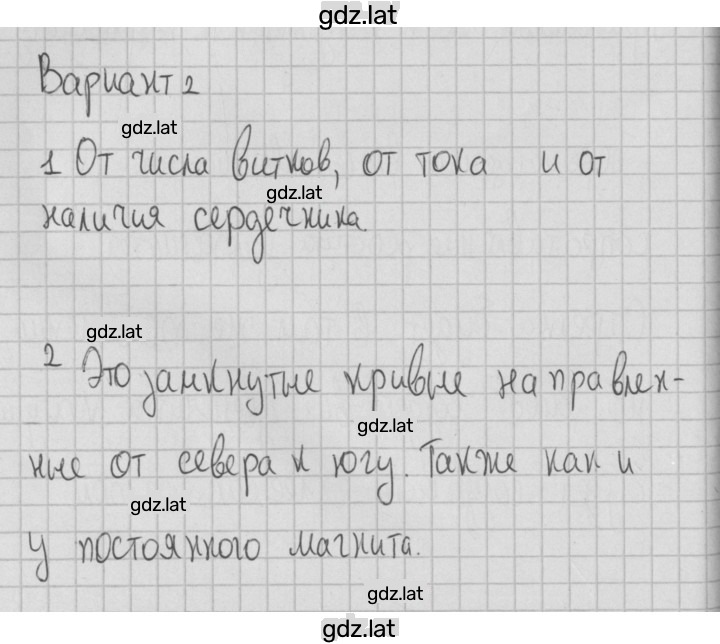 gdz.lat
Вариант 2
gdz.lat
1 От числа витков, от тока и от
gdz.lat
наличия сердечника.
gdz.lat
2 Это замкнутые кривые направлен-
gdz.lat
ные от севера к югу. Также как и
gdz.lat
у постоянного магнита.
gdz.lat
gdz.lat